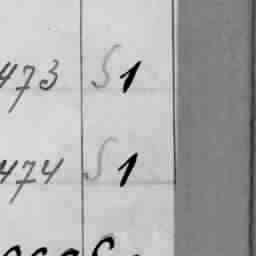 473 S 1
474 S 1